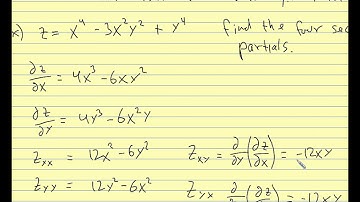 x) z = x⁴ - 3x²y² + y⁴ find the four sec
partials.
∂z/∂x = 4x³ - 6xy²
∂z/∂y = 4y³ - 6x²y
Zxx = 12x² - 6y² Zxy = ∂/∂y (∂z/∂x) = -12xy
Zyy = 12y² - 6x² Zyx = ∂/∂x (∂z/ = -12xy